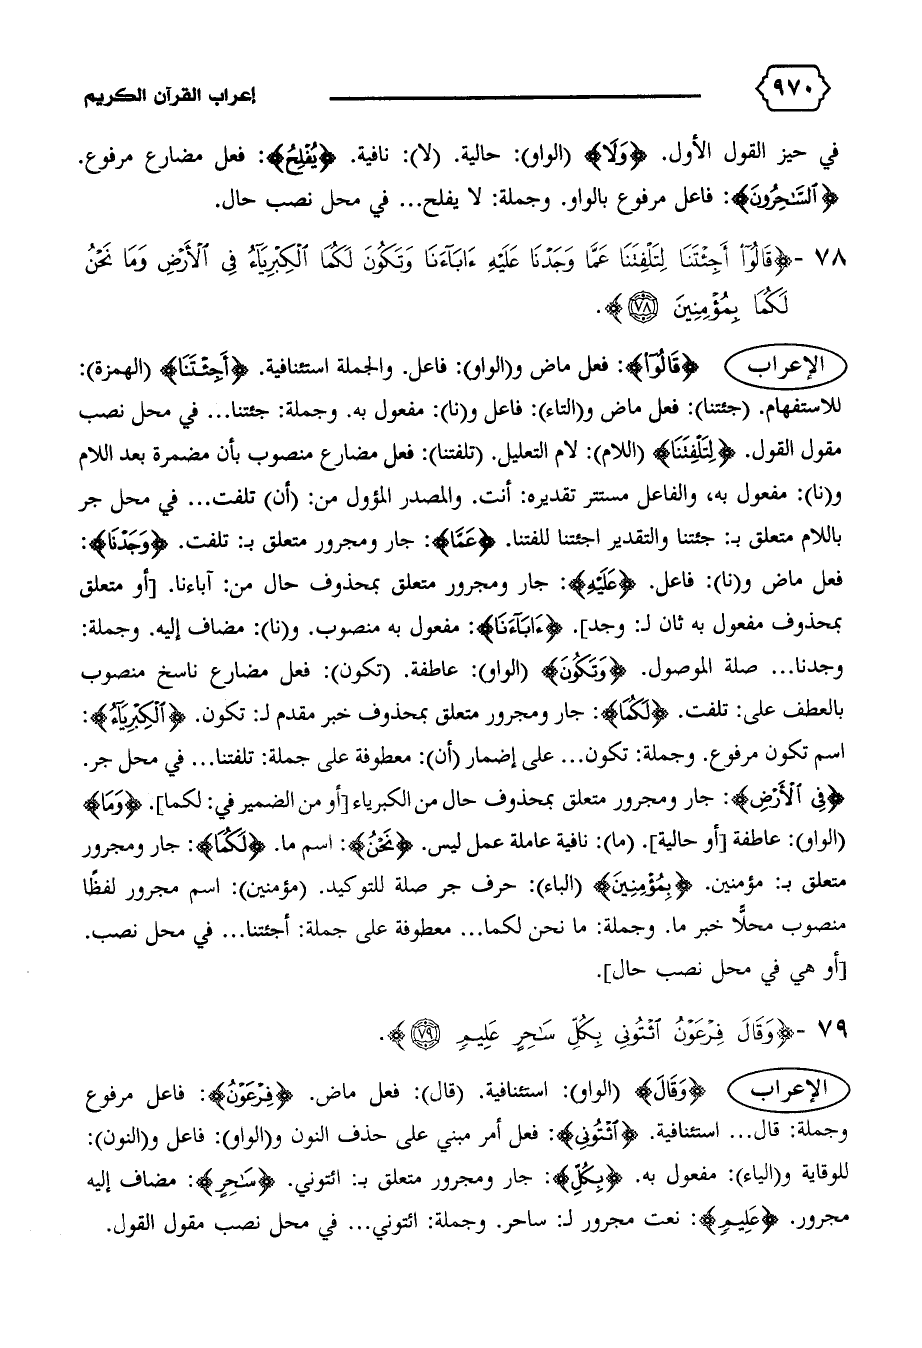 ٩٧٠ إعراب القرآن الكريم
في حيز القول الأول. ﴿وَلَا﴾ (الواو): حالية. (لا): نافية. ﴿يُفْلِحُ﴾: فعل مضارع مرفوع.
﴿ٱلسَّٰحِرُونَ﴾: فاعل مرفوع بالواو. وجملة: لا يفلح... في محل نصب حال.
٧٨ -﴿قَالُوٓا۟ أَجِئْتَنَا لِتَلْفِتَنَا عَمَّا وَجَدْنَا عَلَيْهِ ءَابَآءَنَا وَتَكُونَ لَكُمَا ٱلْكِبْرِيَآءُ فِى ٱلْأَرْضِ وَمَا نَحْنُ
لَكُمَا بِمُؤْمِنِينَ ٧٨﴾.
الإعراب ﴿قَالُوٓا۟﴾: فعل ماض و(الواو): فاعل. والجملة استئنافية. ﴿أَجِئْتَنَا﴾ (الهمزة):
للاستفهام. (جئتنا): فعل ماض و(التاء): فاعل و(نا): مفعول به. وجملة: جئتنا... في محل نصب
مقول القول. ﴿لِتَلْفِتَنَا﴾ (اللام): لام التعليل. (تلفتنا): فعل مضارع منصوب بأن مضمرة بعد اللام
و(نا): مفعول به، والفاعل مستتر تقديره: أنت. والمصدر المؤول من: (أن) تلفت... في محل جر
باللام متعلق بـ: جئتنا والتقدير اجئتنا للفتنا. ﴿عَمَّا﴾: جار ومجرور متعلق بـ: تلفت. ﴿وَجَدْنَا﴾:
فعل ماض و(نا): فاعل. ﴿عَلَيْهِ﴾: جار ومجرور متعلق بمحذوف حال من: آباءنا. [أو متعلق
بمحذوف مفعول به ثان لـ: وجد]. ﴿ءَابَآءَنَا﴾: مفعول به منصوب. و(نا): مضاف إليه. وجملة:
وجدنا... صلة الموصول. ﴿وَتَكُونَ﴾ (الواو): عاطفة. (تكون): فعل مضارع ناسخ منصوب
بالعطف على: تلفت. ﴿لَكُمَا﴾: جار ومجرور متعلق بمحذوف خبر مقدم لـ: تكون. ﴿ٱلْكِبْرِيَآءُ﴾:
اسم تكون مرفوع. وجملة: تكون... على إضمار (أن): معطوفة على جملة: تلفتنا... في محل جر.
﴿فِى ٱلْأَرْضِ﴾: جار ومجرور متعلق بمحذوف حال من الكبرياء [أو من الضمير في: لكما]. ﴿وَمَا﴾
(الواو): عاطفة [أو حالية]. (ما): نافية عاملة عمل ليس. ﴿نَحْنُ﴾: اسم ما. ﴿لَكُمَا﴾: جار ومجرور
متعلق بـ: مؤمنين. ﴿بِمُؤْمِنِينَ﴾ (الباء): حرف جر صلة للتوكيد. (مؤمنين): اسم مجرور لفظًا
منصوب محلًّا خبر ما. وجملة: ما نحن لكما... معطوفة على جملة: أجئتنا... في محل نصب.
[أو هي في محل نصب حال].
٧٩ -﴿وَقَالَ فِرْعَوْنُ ٱئْتُونِى بِكُلِّ سَٰحِرٍ عَلِيمٍ ٧٩﴾.
الإعراب ﴿وَقَالَ﴾ (الواو): استئنافية. (قال): فعل ماض. ﴿فِرْعَوْنُ﴾: فاعل مرفوع
وجملة: قال... استئنافية. ﴿ٱئْتُونِى﴾: فعل أمر مبني على حذف النون و(الواو): فاعل و(النون):
للوقاية و(الياء): مفعول به. ﴿بِكُلِّ﴾: جار ومجرور متعلق بـ: ائتوني. ﴿سَٰحِرٍ﴾: مضاف إليه
مجرور. ﴿عَلِيمٍ﴾: نعت مجرور لـ: ساحر. وجملة: ائتوني... في محل نصب مقول القول.